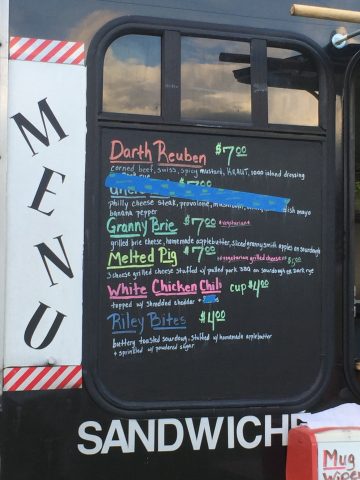 MENU
Darth Reuben $7.00
corned beef, swiss, spicy mustard, KRAUT, 1000 island dressing
philly cheese steak, provolone, mayo
banana pepper
Granny Brie $7.00 *vegetarian*
grilled brie cheese, homemade applebutter, sliced granny smith apples on sourdough
Melted Pig $7.00 *vegetarian grilled cheese $5.00
3 cheese grilled cheese stuffed w/ pulled pork BBQ on sourdough or dark rye
White Chicken Chili cup $4.00
topped w/ shredded cheddar +
Riley Bites $4.00
buttery toasted sourdough, stuffed w/ homemade applebutter
+ sprinkled w/ powdered sugar
SANDWICHE
Mug
Wipe